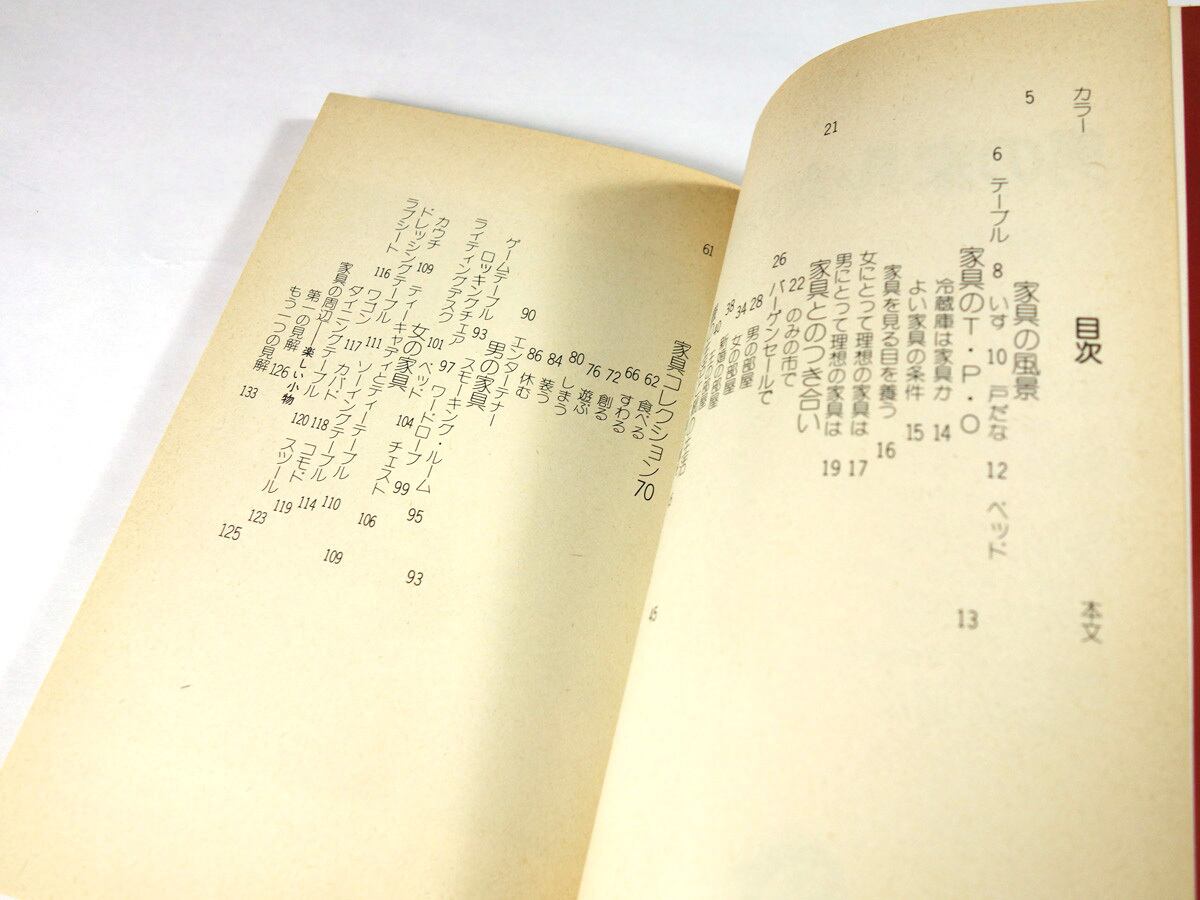 目次
カラー
本文
家具の風景
5
6 テーブル 8 いす 10 戸だな 12 ベッド
家具のT・P・O
13
冷蔵庫は家具か 14
よい家具の条件 15
家具を見る目を養う 16
女にとって理想の家具は 17
男にとって理想の家具は 19
家具とのつき合い
21
22 のみの市で
26 バーゲンセールで
28 男の部屋
34 女の部屋
38 新婚の部屋
40
45
家具コレクション70
61
62 食べる
66 すわる
72 創る
76 遊ぶ
80 しまう
84 装う
86 休む
エンターテナー
90
ゲームテーブル
93
ロッキングチェア
ライティングデスク
男の家具
93
スモーキング・ルーム
95
97 ワードローブ
99
101 ベッド
104 チェスト
106
女の家具
109
ティーキャディとティーテーブル
カウチ 109
ドレッシングテーブル
ラブシート
116
ソーイングテーブル
110
111
ワゴン
117
カバードテーブル
114
ダイニングテーブル
118 コモド
119
120 スツール
123
家具の周辺──楽しい小物
125
第一の見解
126
もう一つの見解
133